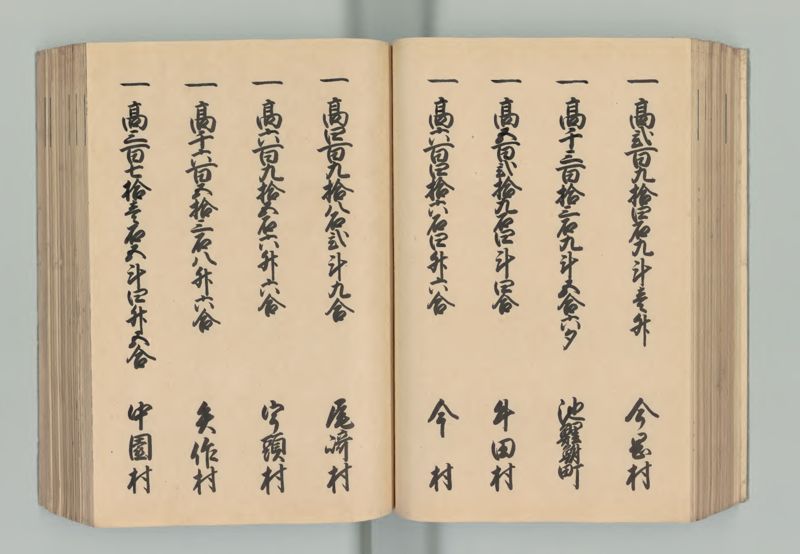 一 高弐百九拾四石九斗壱升 今岡村
一 高千三百拾三石九斗五合六夕 池鯉鮒町
一 高五百弐拾九石四斗四合 牛田村
一 高六百四拾六石四升六合 今村
一 高四百九拾八石弐斗九合 尾崎村
一 高六百九拾五石六升六合 宇頭村
一 高千六百五拾三石八升六合 矢作村
一 高三百七拾壱石五斗四升五合 中園村